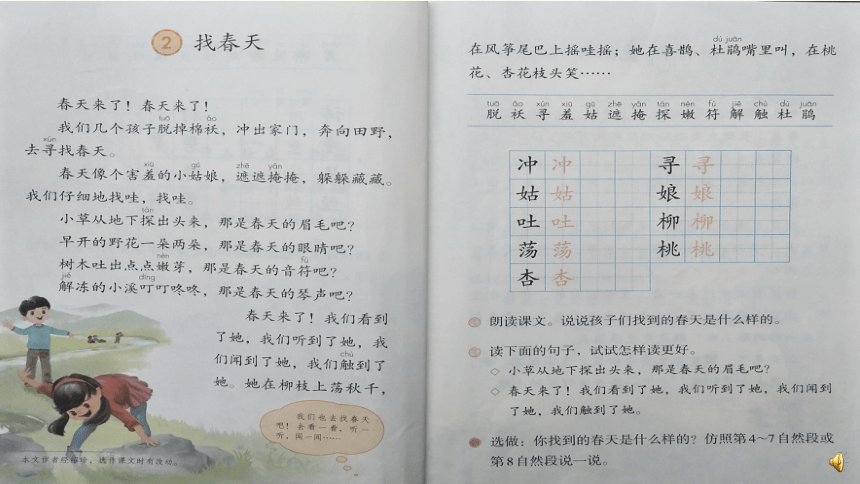 2 找春天
春天来了！春天来了！
我们几个孩子脱掉棉袄，冲出家门，奔向田野，
去寻找春天。
春天像个害羞的小姑娘，遮遮掩掩，躲躲藏藏。
我们仔细地找哇，找哇。
小草从地下探出头来，那是春天的眉毛吧？
早开的野花一朵两朵，那是春天的眼睛吧？
树木吐出点点嫩芽，那是春天的音符吧？
解冻的小溪叮叮咚咚，那是春天的琴声吧？
春天来了！我们看到
了她，我们听到了她，我
们闻到了她，我们触到了
她。她在柳枝上荡秋千，
我们也去找春天
吧！去看一看，听一
听，闻一闻……
本文作者经绍玲，选作课文时有改动。
dù juān
在风筝尾巴上摇哇摇；她在喜鹊、杜鹃嘴里叫，在桃
花、杏花枝头笑……
tuō ǎo xún xiū gū zhē yǎn tàn nèn fú jiě chù dù juān
脱 袄 寻 羞 姑 遮 掩 探 嫩 符 解 触 杜 鹃
冲 冲 寻 寻
姑 姑 娘 娘
吐 吐 柳 柳
荡 荡 桃 桃
杏 杏
朗读课文。说说孩子们找到的春天是什么样的。
读下面的句子，试试怎样读更好。
◇ 小草从地下探出头来，那是春天的眉毛吧？
◇ 春天来了！我们看到了她，我们听到了她，我们闻到
了她，我们触到了她。
选做：你找到的春天是什么样的？仿照第4~7自然段或
第8自然段说一说。